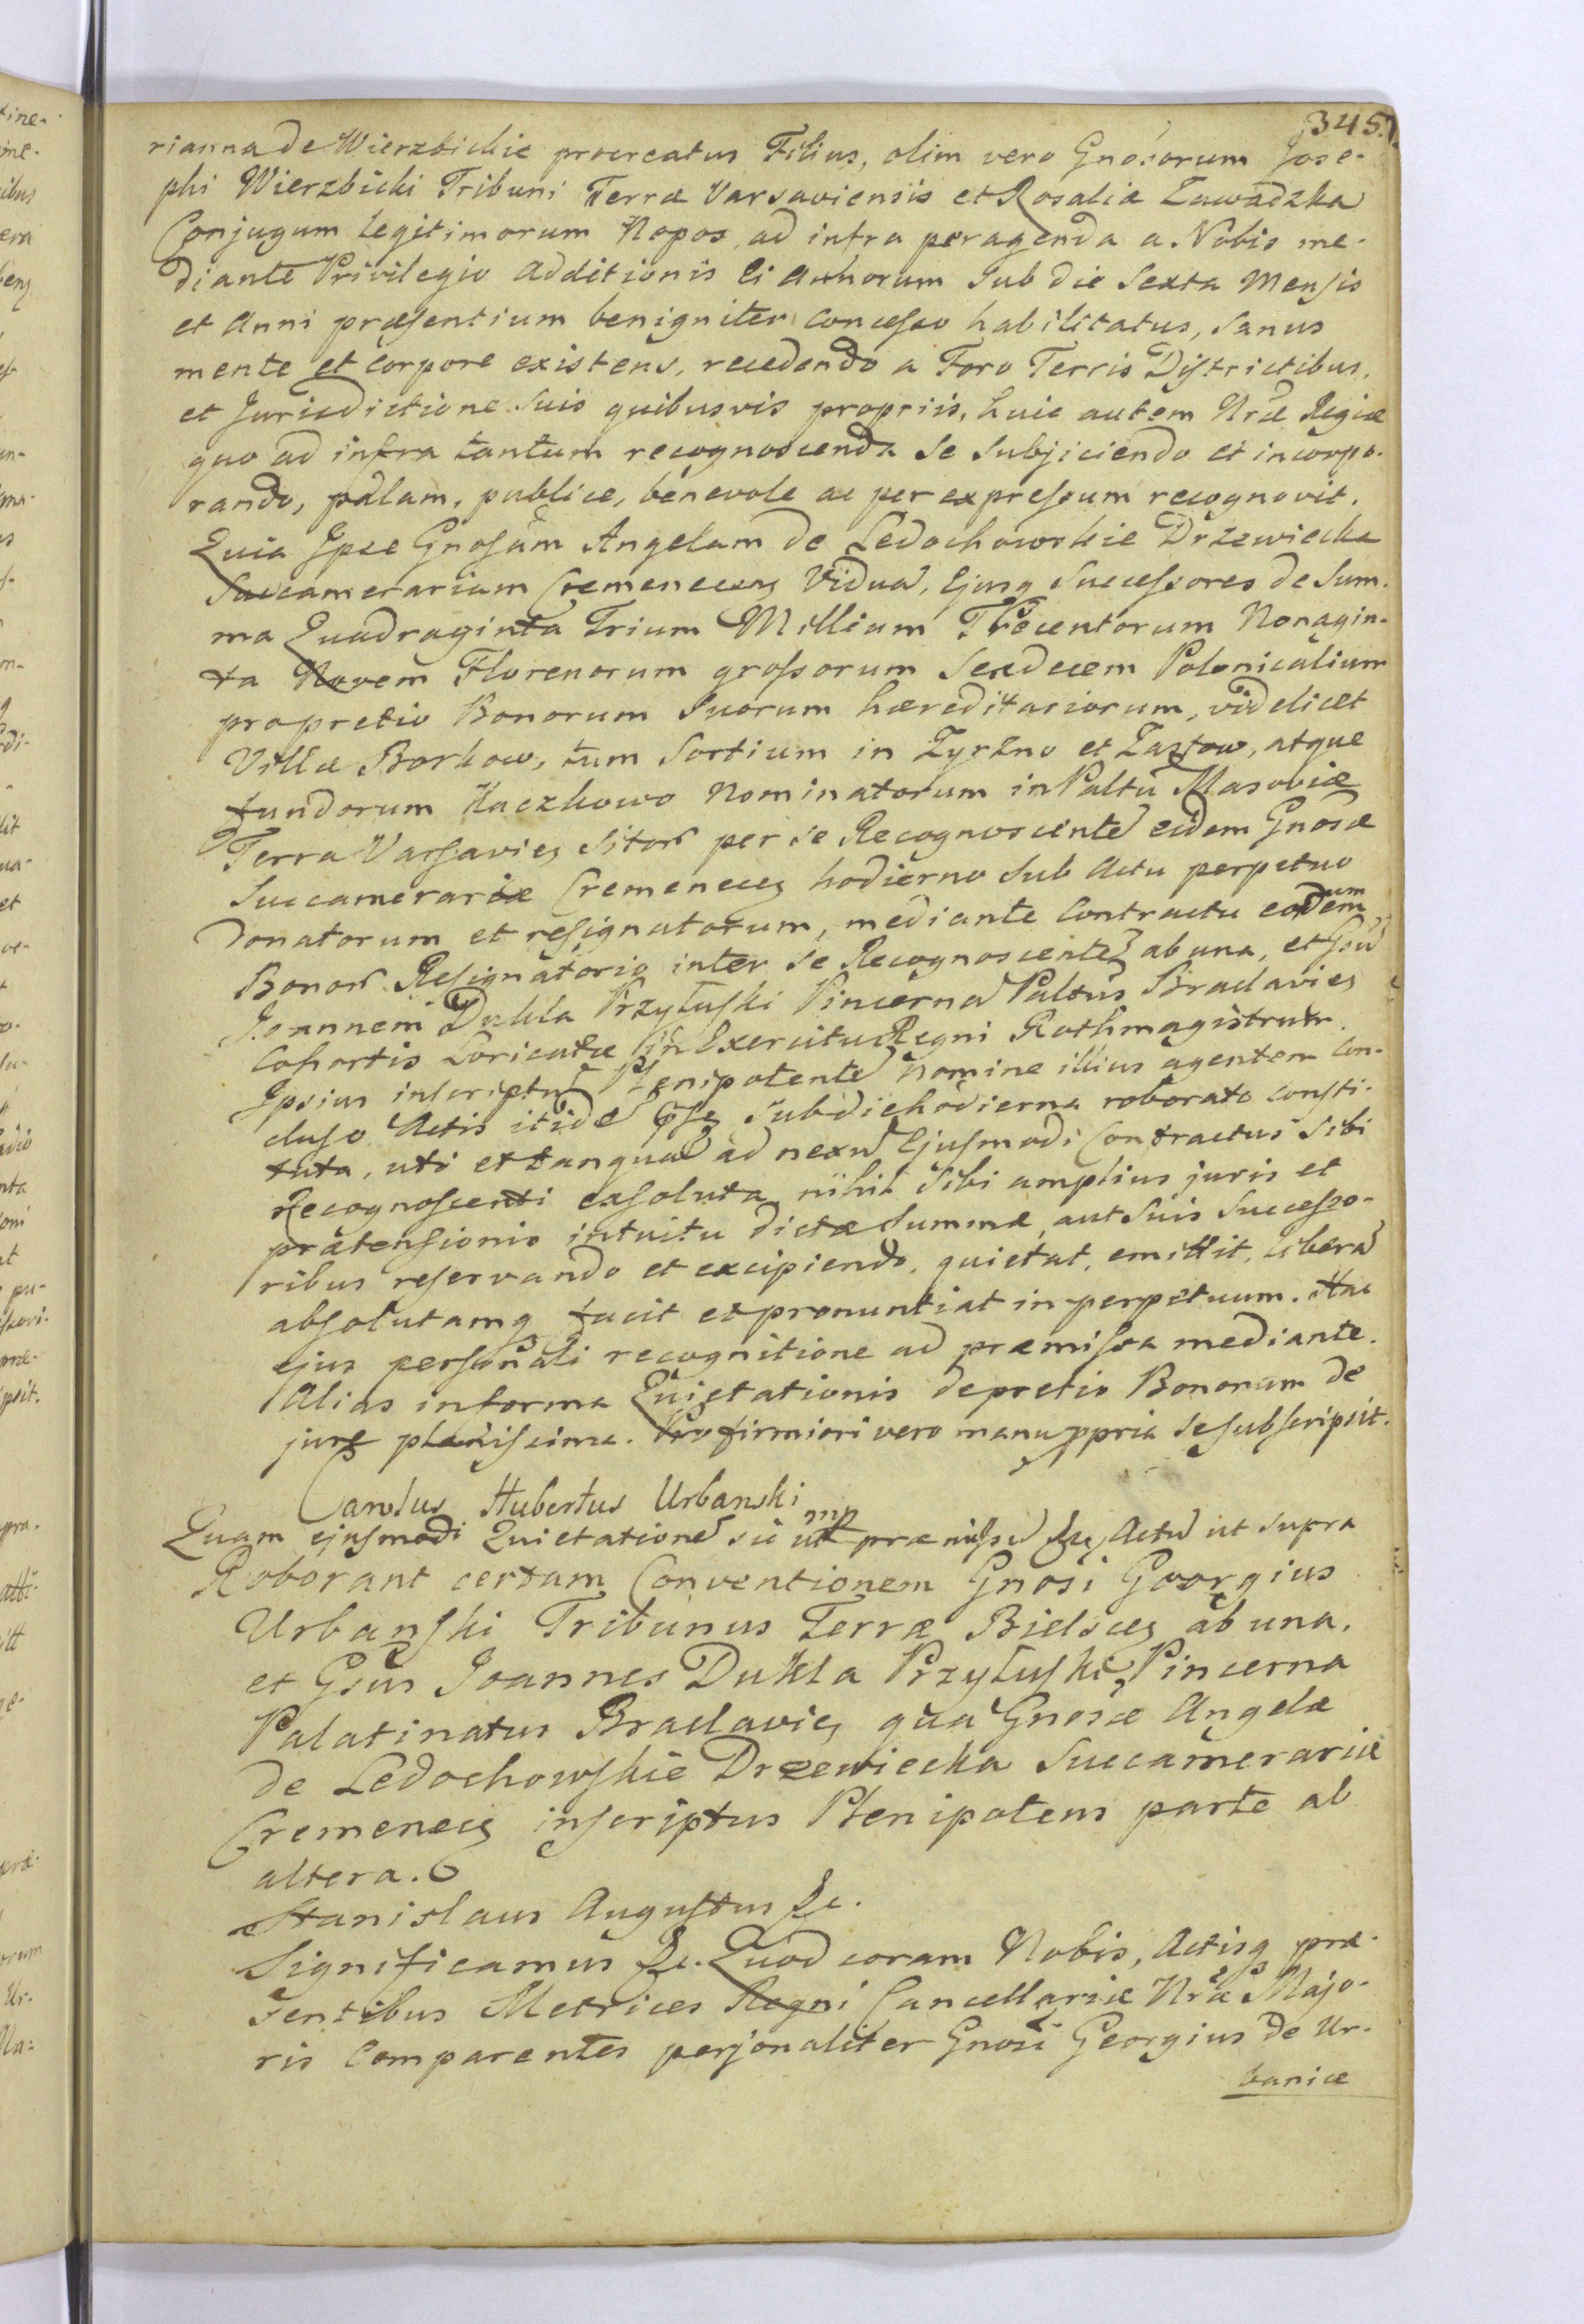 345.
rianna de Wierzbickie procreatus Filius, olim vero Gnosorum Jose-
phi Wierzbicki Tribuni Terræ Varsaviensis et Rosaliæ Zawadzka
Conjugum legitimorum Nepos, ad infra peragenda a Nobis me-
diante Privilegio Additionis Ei Annorum sub die Sexta Mensis
et Anni præsentium benigniter concesso habilitatus, sanus
mente et corpore existens, recedendo a Foro Terris Districtibus,
et Jurisdictione suis quibusvis propriis, huic autem Nræ Regiæ
quo ad infra tantum recognoscenda se subjiciendo et incorpo-
rando, palam, publice, benevole ac per expressum recognovit.
Quia Ipse Gnosam Angelam de Ledochowskie Drzewiecka
Succamerariam Cremeneceng Viduã, Ejusq Successores de Sum-
ma Quadraginta Trium Millium Trecentorum Nonagin-
ta Novem Florenorum grossorum Sexdecem Polonicalium
pro pretio Bonorum Suorum hæreditariorum, videlicet
Villæ Borkow, tum Sortium in Zyrzno et Zastow, atque
fundorum Kaczkowo Nominatorum in Paltu Masoviæ
Terra Varsavieñ sitor per se Recognoscentẽ eidem Gnosæ
Succamerariæ Cremeneceñ hodierno sub Actu perpetuo
Donatorum et resignatorum, mediante Contractu eorundem
Bonor Resignatorio inter se Recognoscentẽ ab una, et Gsũ
Joannem Dukla Przyłuski Pincernã Paltus Braclavieñ
Cohortis Loricatæ in Exercitu Regni Rothmagistrum,
Ipsius inscriptũ Plenipotentẽ nomine illius agentem con-
cluso Actis itidẽ sub die hodierna roborato consti-
tuta, uti et tanquã ad nexũ Ejusmodi Contractus sibi
Recognoscenti exsoluta nihil sibi amplius juris et
prætensionis intuitu dictæ Summæ, aut Suis Successo-
ribus reservando et excipiendo, quietat, emittit, liberã
absolutamq facit et pronuntiat in perpetuum. Hac
ejus personali recognitione ad præmissa mediante.
Alias in forma Quietationis de pretio Bonorum de
jure plenissima. Pro firmiori vero manu ppria se subscripsit.
Carolus Hubertus Urbanski mp
Quam ejusmodi Quietationẽ sic ut præmissũ &c Actũ ut supra
Roborant certam Conventionem Gnosi Georgius
Urbanski Tribunus Terræ Bielsceñ ab una,
et Gsus Joannes Dukla Przyłuski, Pincerna
Palatinatus Braclavieñ, qua Gnosæ Angelæ
de Ledochowskie Drzewiecka Succamerariæ
Cremeneceñ inscriptus Plenipotens parte ab
altera.
Stanislaus Augustus &c.
Significamus &c. Quod coram Nobis, Actisq præ-
sentibus Metrices Regni Cancellariæ Nræ Majo-
ris Comparentes personaliter Gnosi Georgius de Ur-
banice